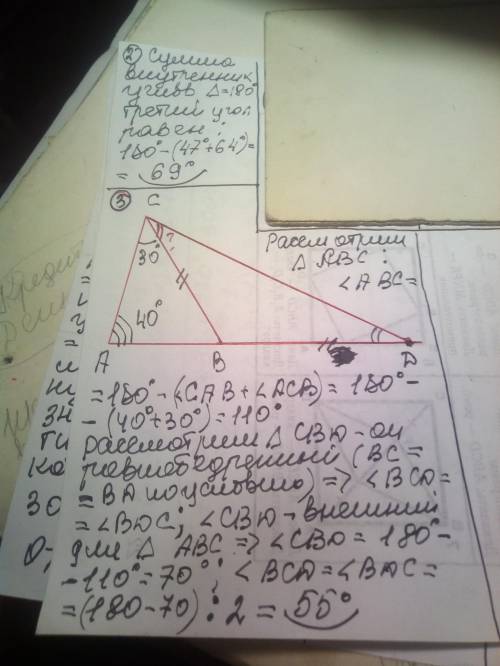 ② Сумма
внутренних
углов Δ=180°
третий угол
равен:
180°-(47°+64°)=
= 69°
③
C
30°
?
40°
A
B
D
Рассмотрим
Δ ABC:
∠ABC=
=180°-(∠CAB+∠ACB)=180°-
-(40°+30°)=110°
рассмотрим Δ CBD-он
равнобедренный (BC=
=BD по условию)=>∠BCD=
=∠BDC; ∠CBD-внешний
для Δ ABC=>∠CBD=180°-
-110°=70°; ∠BCD=∠BDC=
=(180-70):2=55°
Кредит
30